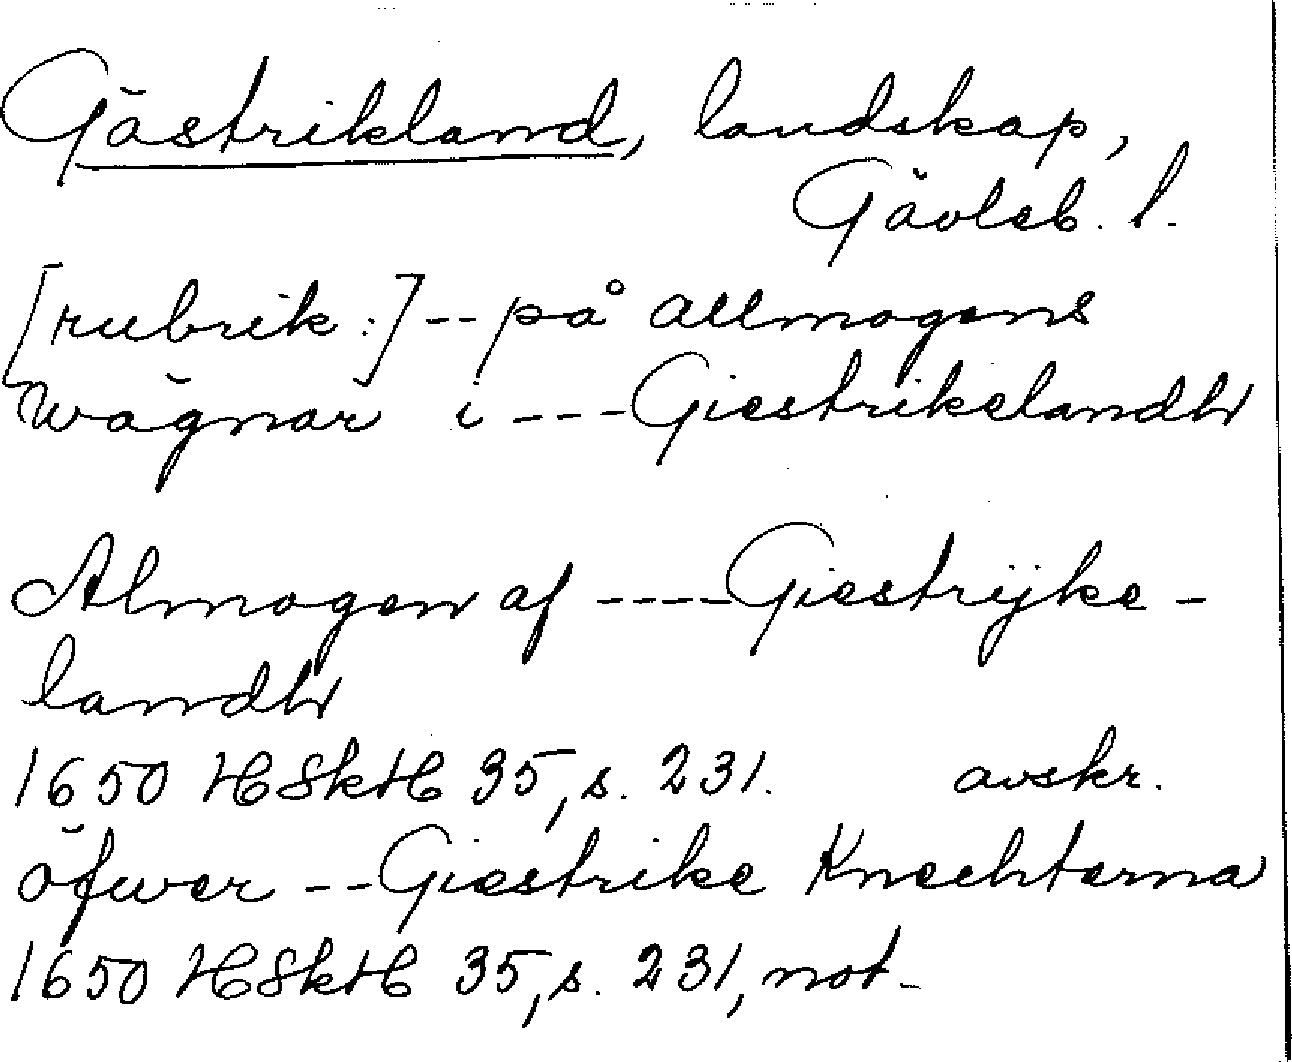 Gästrikland, landskap,
Gävleb. l.
[rubrik:] -- på allmogens
wägnar i --- Giestrikelandh
Almogen af ---- Giestrijke-
landh
1650 HSkH 35, s. 231. avskr.
öfwer -- Giestrike Knechterna
1650 HSkH 35, s. 231, not.